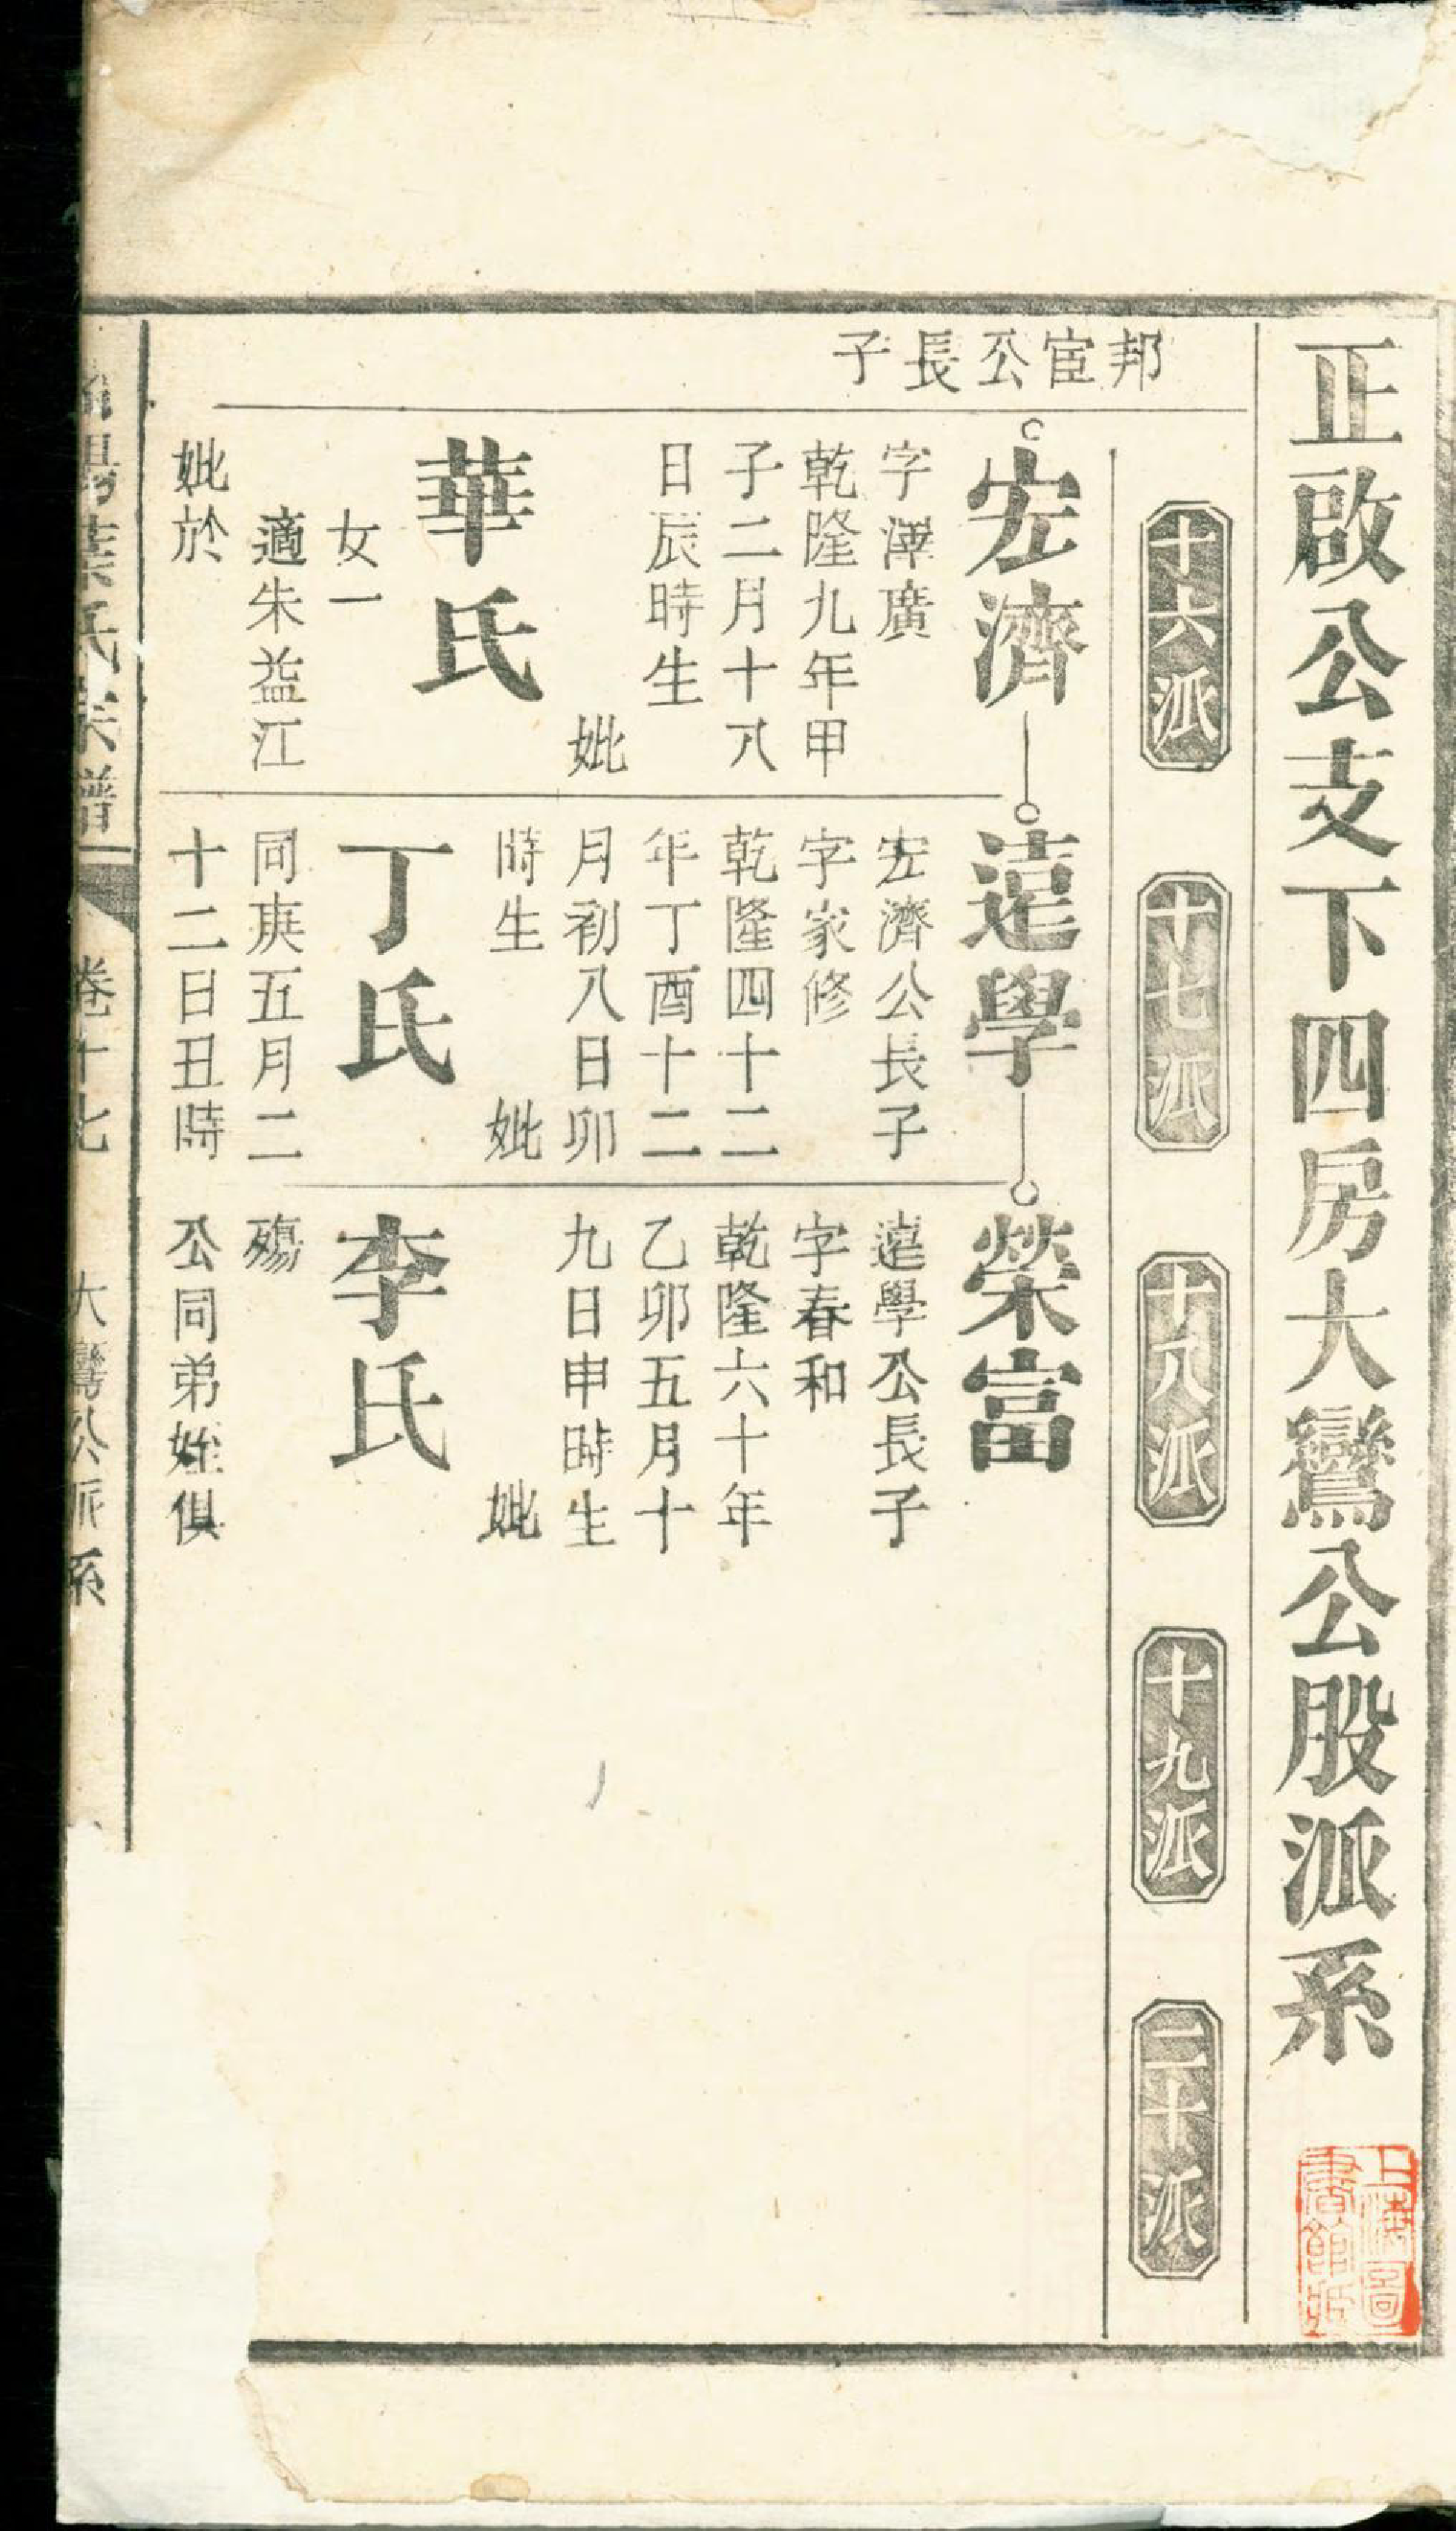 正啟公支下四房大鸞公股派系
十六派
十七派
十八派
十九派
二十派
邦宦公長子
宏濟
字澤廣
乾隆九年甲
子二月十八
日辰時生
妣
華氏
女一
適朱益江
妣於
遠學
宏濟公長子
字家修
乾隆四十二
年丁酉十二
月初八日卯
時生
妣
丁氏
同庚五月二
十二日丑時
榮富
遠學公長子
字春和
乾隆六十年
乙卯五月十
九日申時生
妣
李氏
殤
公同弟姪俱
葉氏宗譜
卷十七
大鸞公派系
上海圖
書館藏